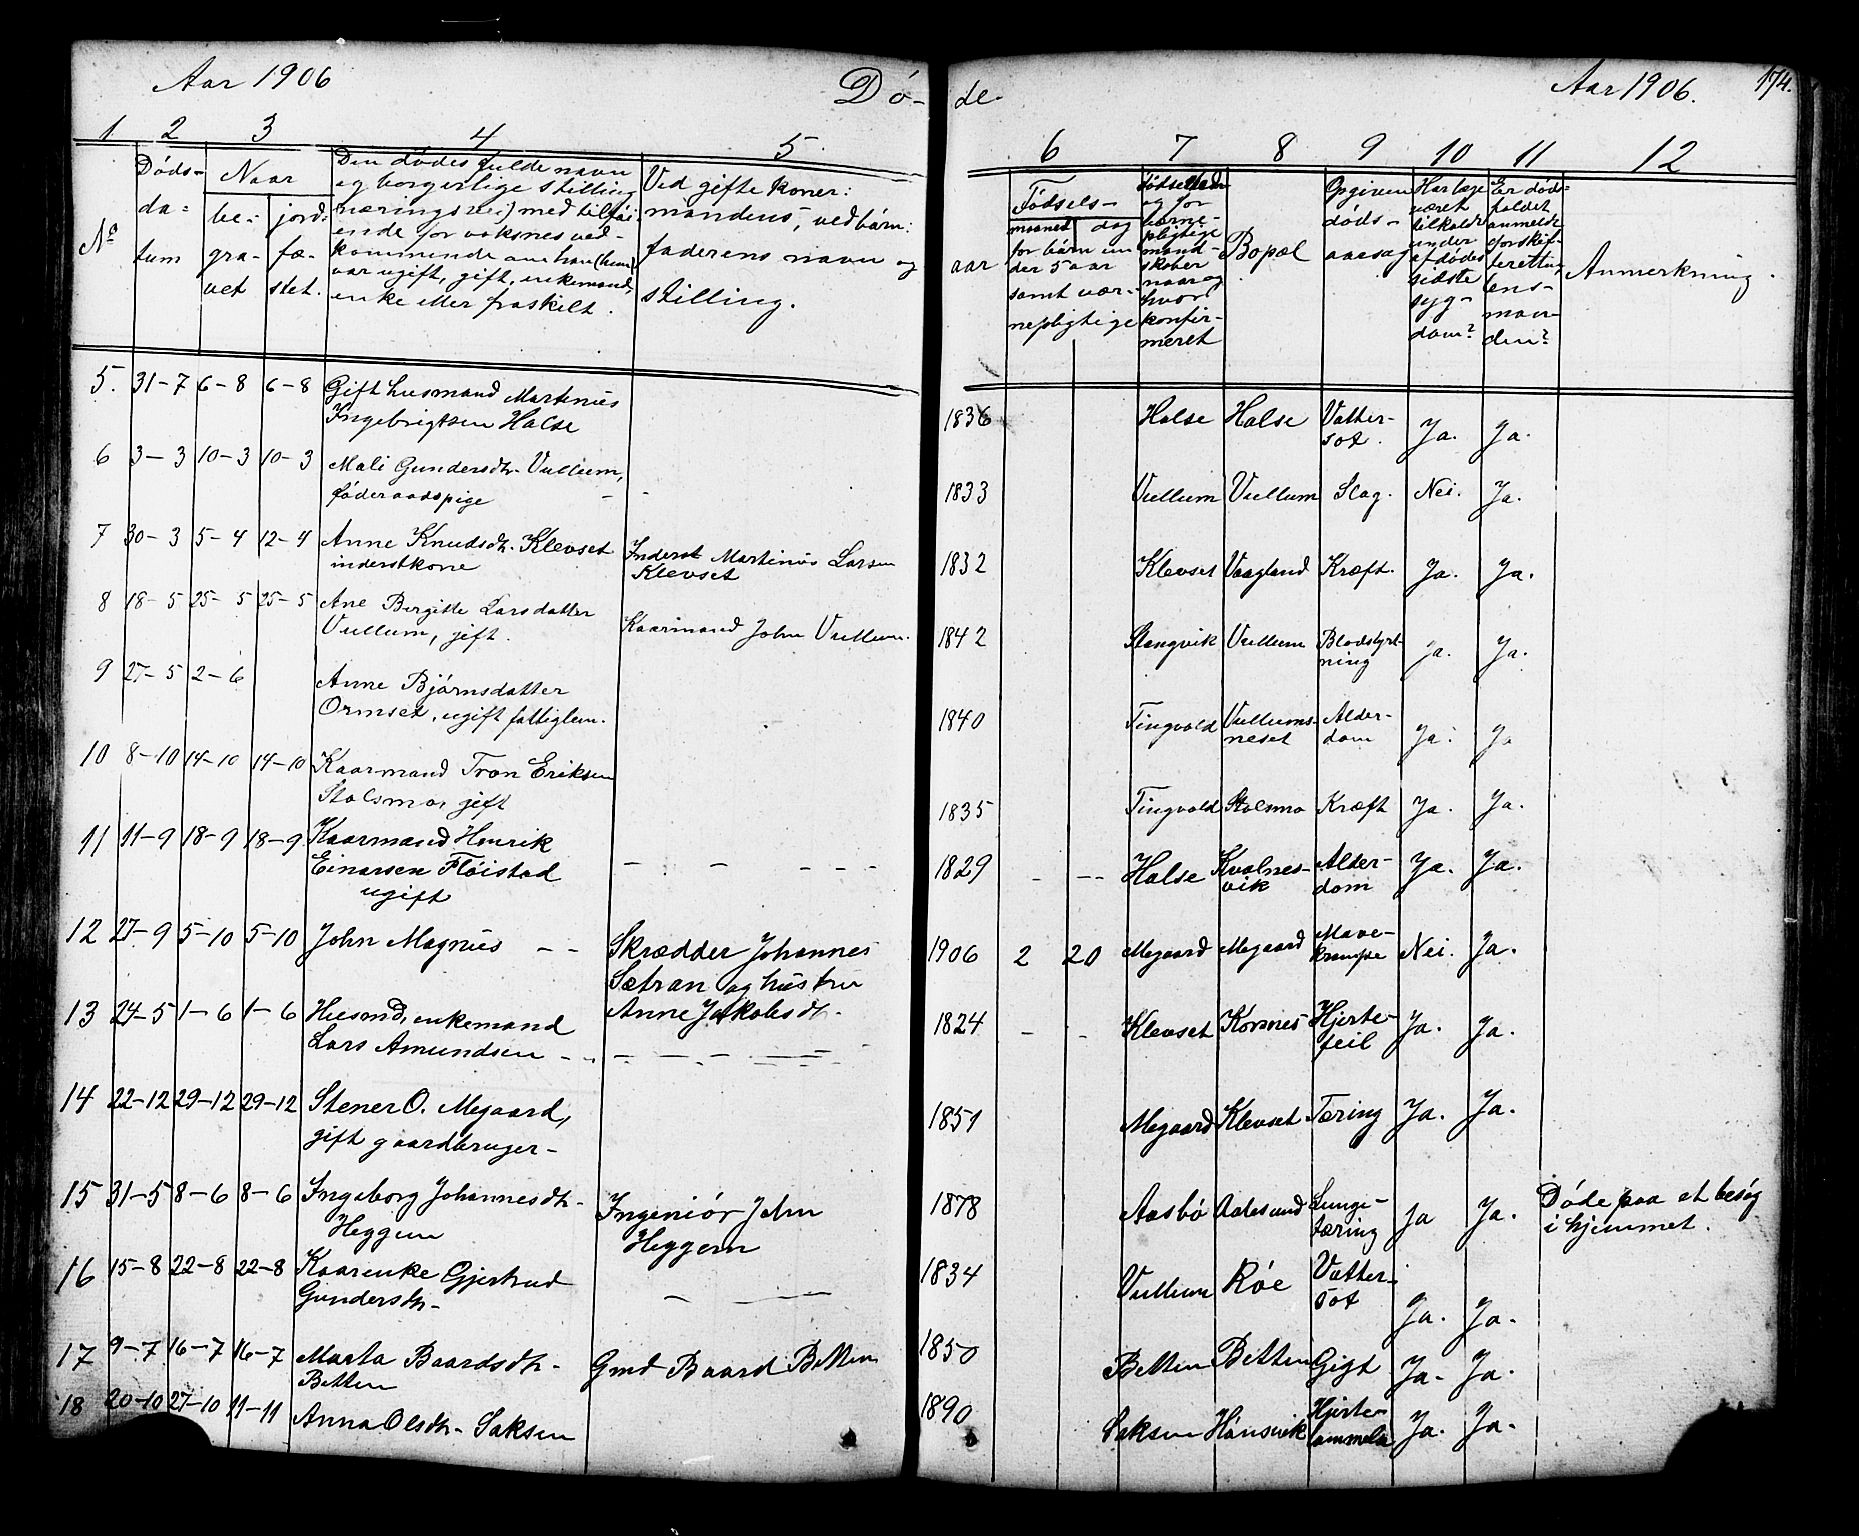 Aar 1906
Dö-
de.
Aar 1906.
174.
1 2 3 4 5
6 7 8 9 10 11 12
No
Döds-
da-
tum
Naar
be-
gra-
vet
jord-
fæ-
stet.
Den dödes fulde navn
og borgerlige stilling
(næringsvei) med tilföi-
ende for voksnes ved-
kommende om han (hun)
var ugift, gift, enkemand,
enke eller fraskilt.
Ved gifte koner:
mandens, ved börn:
faderens navn og
stilling.
Födsels-
aar
maaned dag
for börn un
der 5 aar
samt vær-
nepligtige
Födselssted
og for
værne-
pligtige
mand-
skaber
naar og
hvor
konfir-
meret
Bopæl
Opgiven
döds-
aarsag
Har læge
været
tilkaldt
under
afdödes
sidste
syg-
dom?
Er döds-
faldet
anmeldt
f. skif-
teretten,
lens-
man-
den?
Anmerkning.
5. 31-7 6-8 6-8 Gift husmand Martinus
Ingebrigtsen Halse
1836 Halse Halse Vatter-
sot. Ja. Ja.
6 3-3 10-3 10-3 Mali Gundersdtr. Vullum,
föderaadspige - -
1833 Vullum Vullum Slag. Nei. Ja.
7 30-3 5-4 12-4 Anne Knudsdtr. Klevset
inderstkone
Inderst Martinus Larsen
Klevset
1832 Klevset Vaagland Kræft. Ja. Ja.
8 18-5 25-5 25-5 Ane Bergitte Larsdatter
Vullum, gift.
Kaarmand John Vullum.
1842 Stangvik Vullum Blodstyrt-
ning Ja. Ja.
9 27-5 2-6 Anne Björnsdatter
Ormset, ugift fattiglem.
1840 Tingvold Vullums-
neset Alder-
dom Ja. Ja
10 8-10 14-10 14-10 Kaarmand Tron Eriksen
Stolsmo, gift
1835 Tingvold Stolsmo Kræft Ja. Ja.
11 11-9 18-9 18-9 Kaarmand Henrik
Einarsen Flöistad
ugift
- - - - -
1829 - - - Halse Kvalnes-
vik Alder-
dom Ja. Ja.
12 27-9 5-10 5-10 John Magnus - -
Skrædder Johannes
Sætran og hustru
Anne Jakobsdt.
1906 2 20 Megaard Megaard Mave-
krampe Nei. Ja.
13 24-5 1-6 1-6 Husmd, enkemand
Lars Amundsen - - -
1824 - - Klevset Kornes Hjerte-
feil Ja. Ja.
14 22-12 29-12 29-12 Stener O. Megaard,
gift gaardbruger-
1851 Megaard Klevset Tæring Ja. Ja.
15 31-5 8-6 8-6 Ingeborg Johannesdtr-
Heggem
Ingeniör John
Heggem
1878 Aasbö Aalesund Lunge-
tæring Ja Ja. Döde paa et besög
i hjemmet.
16 15-8 22-8 22-8 Kaarenke Gjertrud
Gundersdtr-
1834 Vullum Röe Vatter-
sot Ja. Ja.
17 9-7 16-7 16-7 Marta Baardsdtr-
Betten
Gmd Baard Betten
1850 Betten Betten Gigt Ja- Ja.
18 20-10 27-10 11-11 Anna Olsdtr- Saksen
1890 Saksen Hönsvik Hjerte-
lammelse Ja. Ja-